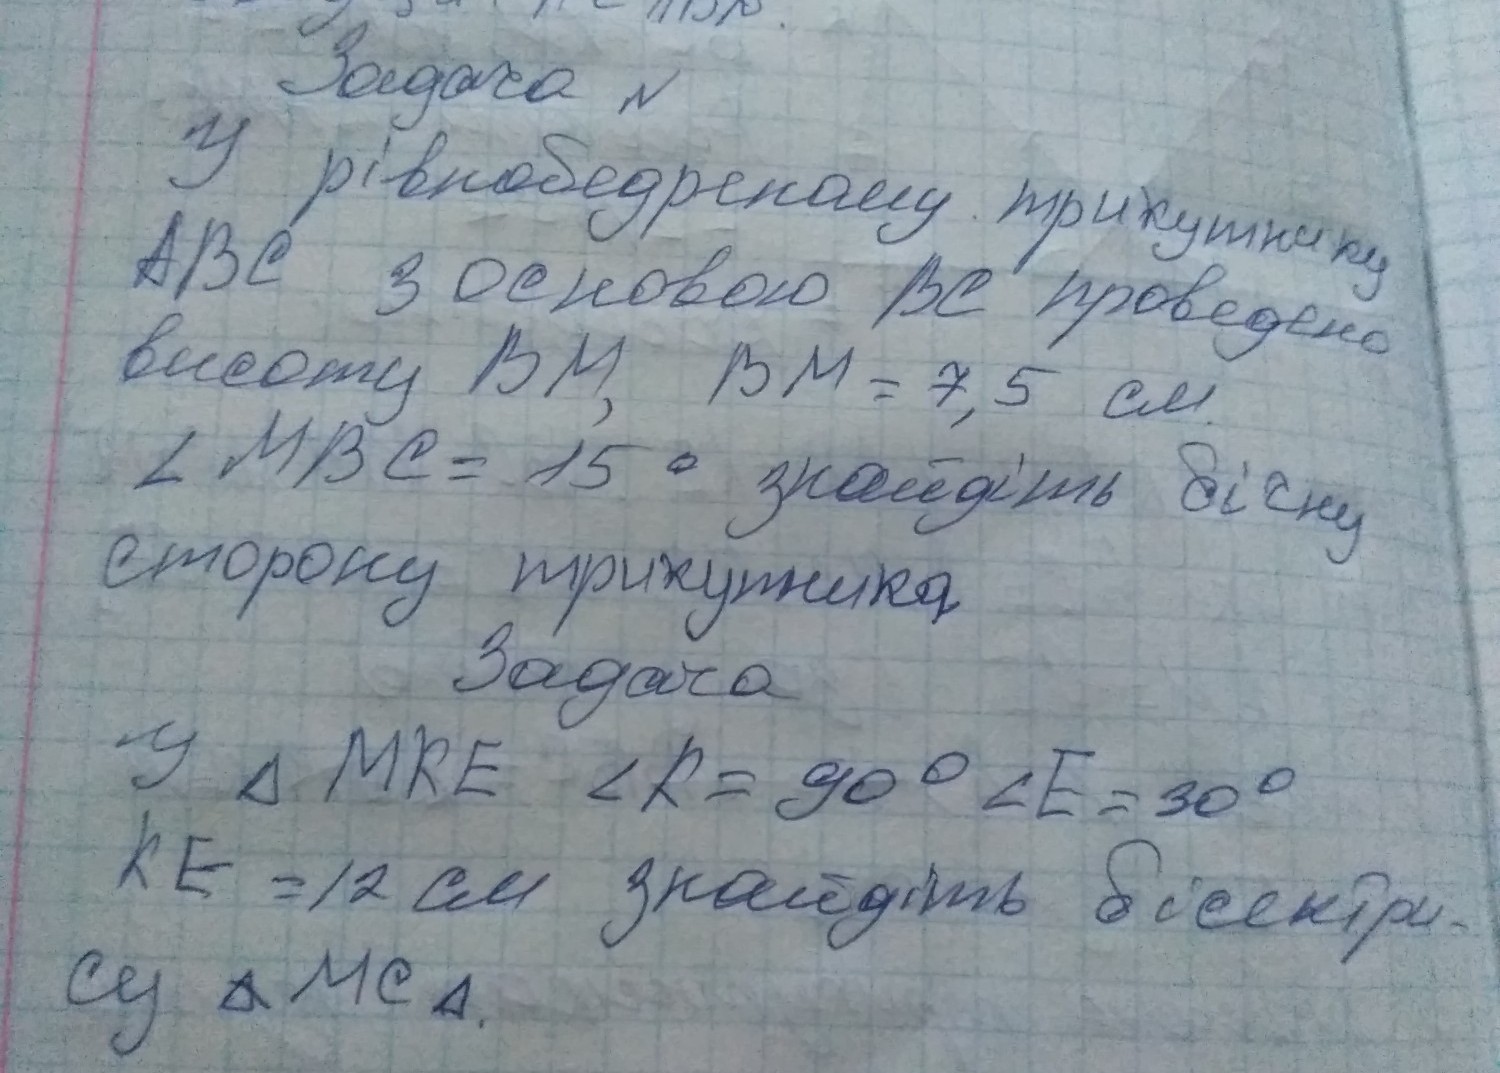 Задача N
У рівнобедреному трикутнику
ABC з основою BC проведено
висоту BM, BM = 7,5 см.
∠MBC = 15° знайдіть бічну
сторону трикутника
Задача
У △ MKE ∠K = 90° ∠E = 30°
KE = 12 см знайдіть бісектри-
су △ MC △.